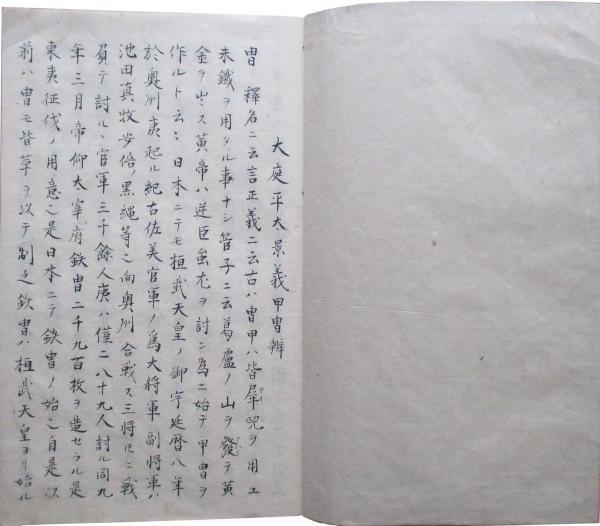 大庭平太景義甲冑辨
冑 釋名ニ云言正義ニ云古ハ冑甲ハ皆犀兕ヲ用エ
未鐵ヲ用タル事ナシ管子ニ云葛盧ノ山ヲ發テ黄
金ヲ出ス黄帝ハ逆臣蚩尤ヲ討ン為ニ始テ甲冑ヲ
作ルト云々日本ニテモ桓武天皇ノ御宇延暦八年
於奥州夷起ル紀古佐美官軍ノ為大将軍副将軍ハ
池田真牧安倍ノ黒縄等之向奥州合戦ス三将氏ニ戦
負テ討ル、官軍三千餘人夷ハ僅二八十九人討ル同九
年三月帝仰太宰府鉄冑二千九百枚ヲ造セラル是
東夷征伐ノ用意也是日本ニテ鉄冑ノ始也自是以
前ハ冑モ皆草ヲ以テ制之鉄冑ハ桓武天皇ヨリ始ル